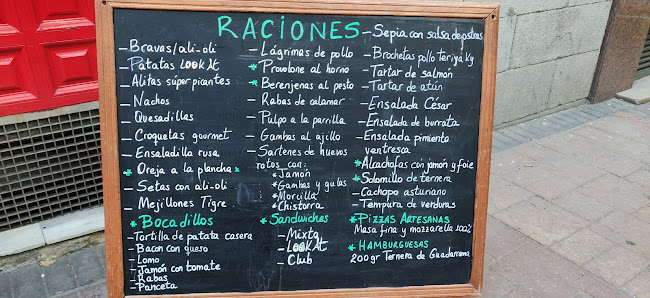 RACIONES
- Bravas/ali-oli
- Patatas LOOK AT
- Alitas súper picantes
- Nachos
- Quesadillas
- Croquetas gourmet
- Ensaladilla rusa
* Oreja a la plancha *
- Setas con ali-oli
- Mejillones Tigre
* Bocadillos
- Tortilla de patata casera
- Bacon con queso
- Lomo
- Jamón con tomate
- Rabas
- Panceta
- Lágrimas de pollo
* Provolone al horno
* Berenjenas al pesto
- Rabas de calamar
- Pulpo a la parrilla
- Gambas al ajillo
- Sartenes de huevos
rotos con:
* Jamón
* Gambas y gulas
* Morcilla
* Chistorra
* Sandwiches
- Mixto
- LOOK AT
- Club
- Sepia con salsa de ostras
- Brochetas pollo Teriyaky
- Tartar de salmón
- Tartar de atún
- Ensalada César
- Ensalada de burrata
- Ensalada pimiento
ventresca
* Alcachofas con jamón y foie
* Solomillo de ternera
- Cachopo asturiano
- Tempura de verduras
* PIZZAS ARTESANAS
Masa fina y mozzarella 100%
* HAMBURGUESAS
200 gr Ternera de Guadarrama